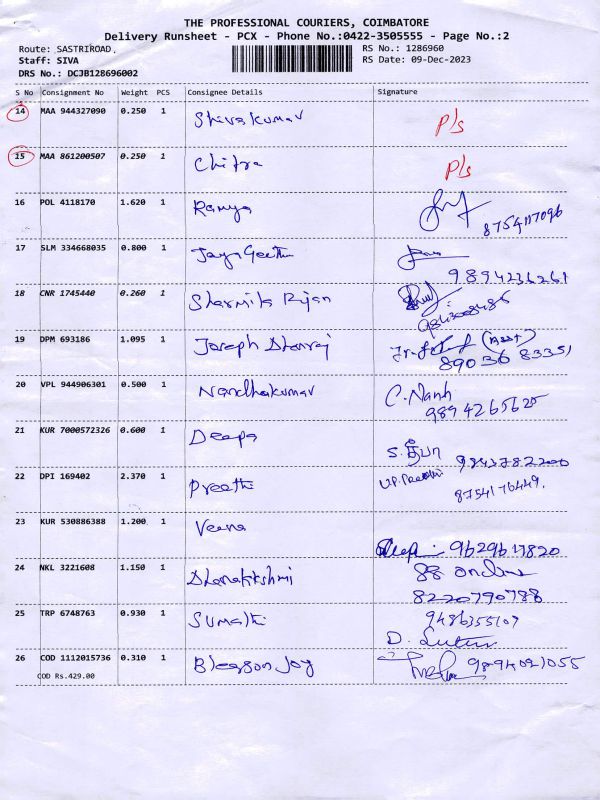 THE PROFESSIONAL COURIERS, COIMBATORE
Delivery Runsheet - PCX - Phone No.:0422-3505555 - Page No.:2
Route: SASTRIROAD, RS No.: 1286960
Staff: SIVA RS Date: 09-Dec-2023
DRS No.: DCJB128696002
S No Consignment No Weight PCS Consignee Details Signature
14 MAA 944327090 0.250 1 Shivakumar P/s
15 MAA 861200507 0.250 1 Chitra P/s
16 POL 4118170 1.620 1 Ramya
8754117096
17 SLM 334668035 0.800 1 Jaya Geetha
9894236261
18 CNR 1745440 0.260 1 Sharmila Rijan
19 DPM 693186 1.095 1 Joseph Dhanraj
89036 83351
20 VPL 944906301 0.500 1 Nandhakumar C. Nanh
9894265625
21 KUR 7000572326 0.600 1 Deepa
S. தீபா 9843782200
22 DPI 169402 2.370 1 Preethi
8754176449.
23 KUR 530886388 1.200 1 Veena
9629617820
24 NKL 3221608 1.150 1 Dhanalakshmi 88 online
8220790788
25 TRP 6748763 0.930 1 Sumathi 9486355107
D.
26 COD 1112015736 0.310 1 Blesson Joy 9894021055
COD Rs.429.00